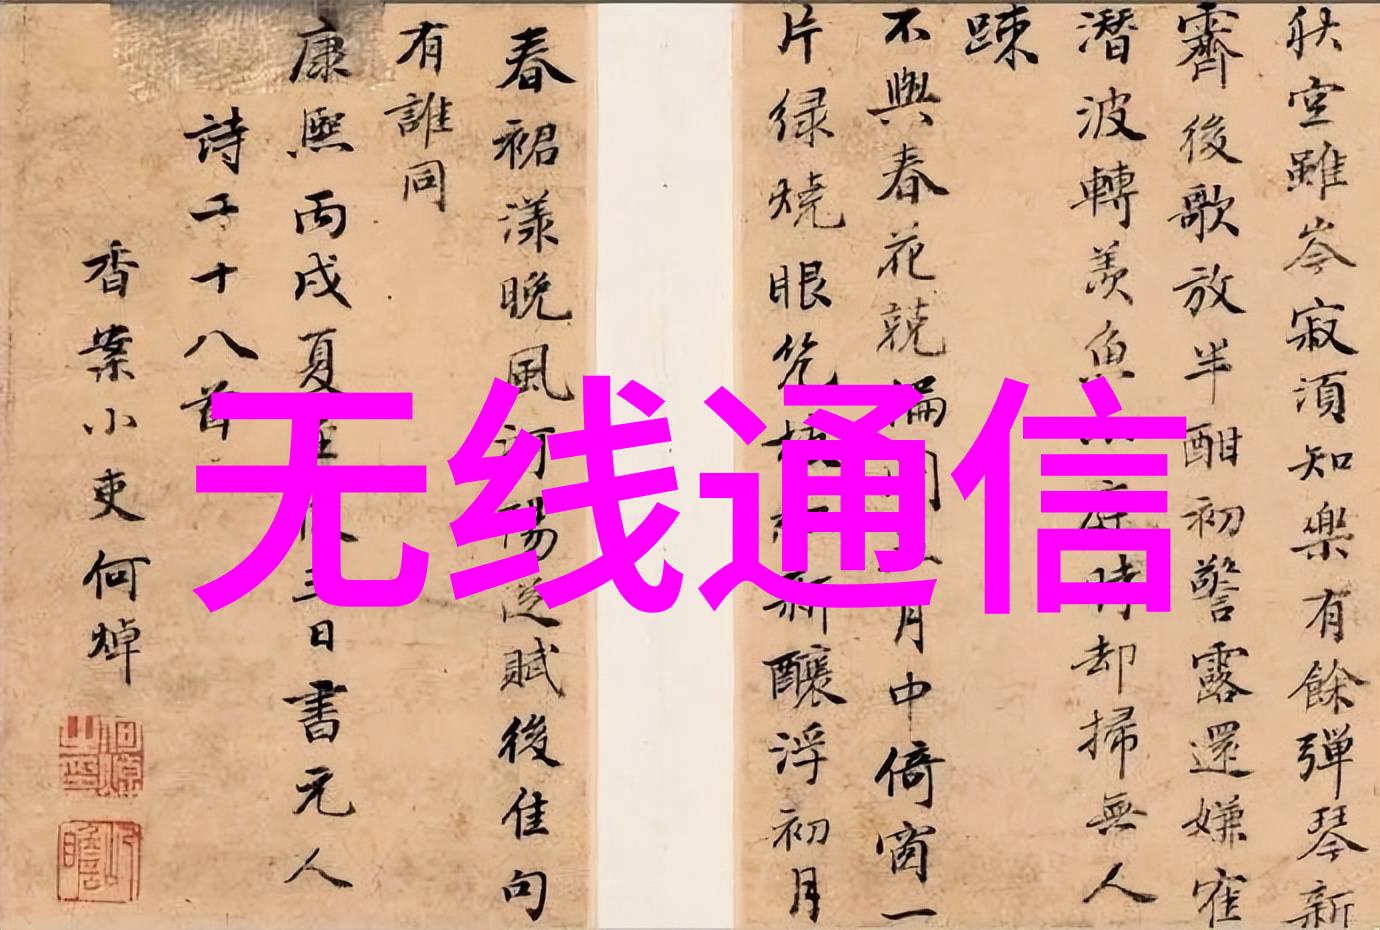 秋空雖岑寂須知樂有餘彈琴新
霽後歌放半酣初警露還嫌窄
潛波轉羨魚府時却掃無人
踈
不與春花競偏開月中倚窗一
片緑燒眼幾枝新釀浮初月
春裙漾晚風河陽從賦後佳句
有誰同
康熙丙戌夏至後三日書元人
詩二十八首
香案小吏何焯
无线通信